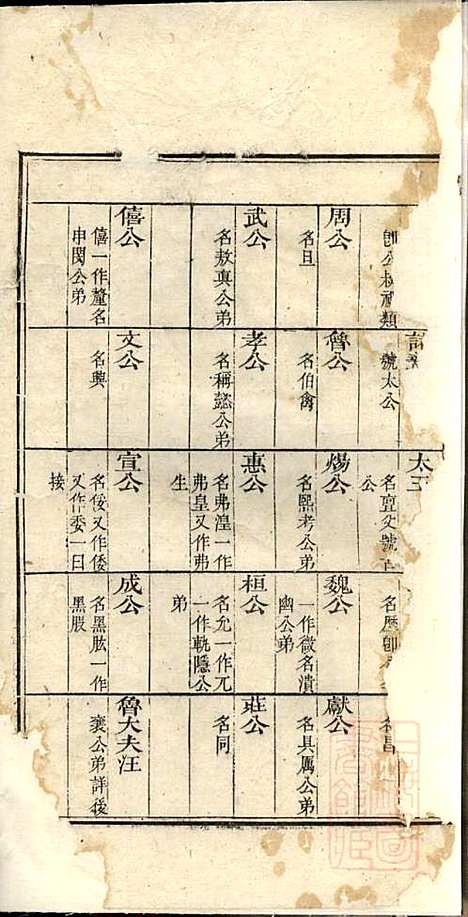 即公叔祖類
號太公
太王
名亶父號
公
名歷即
昌
周公
名旦
魯公
名伯禽
煬公
名熙考公弟
魏公
一作微名潰
幽公弟
獻公
名具厲公弟
武公
名敖真公弟
孝公
名稱懿公弟
惠公
名弗湟一作
弗皇又作弗
生
桓公
名允一作兀
一作軌隱公
弟
莊公
名同
僖公
僖一作釐名
申閔公弟
文公
名興
宣公
名俀又作倭
又作委一曰
接
成公
名黑肱一作
黑股
魯大夫汪
襄公弟詳後